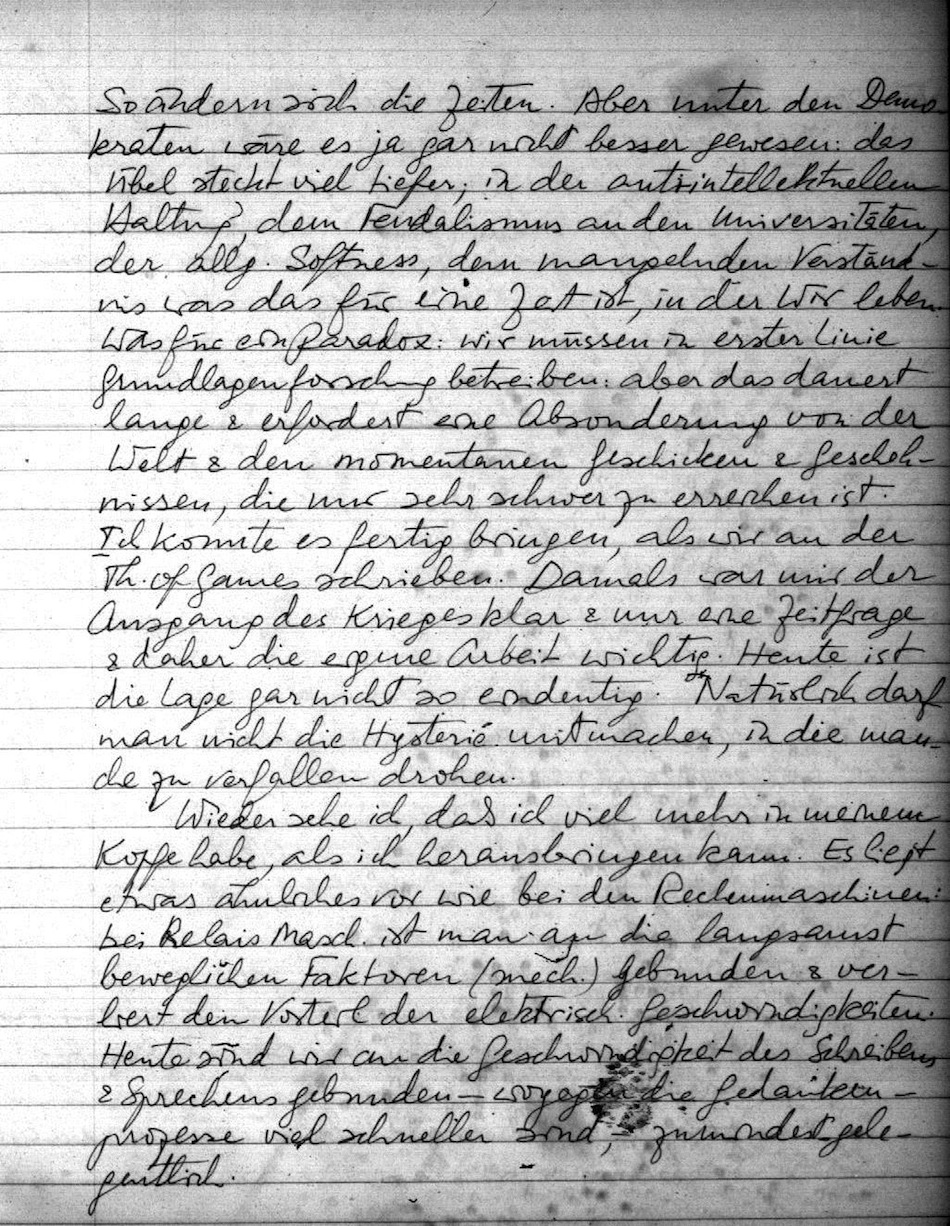 So ändern sich die Zeiten. Aber unter den Demo
kraten wäre es ja gar nicht besser gewesen: das
Übel steckt viel tiefer; in der antiintellektuellen
Haltung, dem Feudalismus an den Universitäten,
der allg. Softness, dem mangelnden Verständ-
nis was das für eine Zeit ist, in der wir leben.
Was für ein Paradox: wir müssen in erster Linie
Grundlagenforschung betreiben: aber das dauert
lange & erfordert eine Absonderung von der
Welt & den momentanen Geschicken & Gescheh-
nissen, die nur sehr schwer zu erreichen ist.
Ich konnte es fertig bringen, als wir an der
Th. of Games schrieben. Damals war mir der
Ausgang des Krieges klar & nur eine Zeitfrage
& daher die eigene Arbeit wichtig. Heute ist
die Lage gar nicht so eindeutig. Natürlich darf
man nicht die Hysterie mitmachen, in die man-
che zu verfallen drohen.
Wieder sehe ich, daß ich viel mehr in meinem
Kopfe habe, als ich herausbringen kann. Es liegt
etwas ähnliches vor wie bei den Rechenmaschinen:
bei Relais Masch. ist man an die langsamst
beweglichen Faktoren (mech.) gebunden & ver-
liert den Vorteil der elektrisch. Geschwindigkeiten.
Heute sind wir an die Geschwindigkeit des Schreibens
& Sprechens gebunden – wogegen die Gedanken-
prozesse viel schneller sind, – zumindest gele-
gentlich.